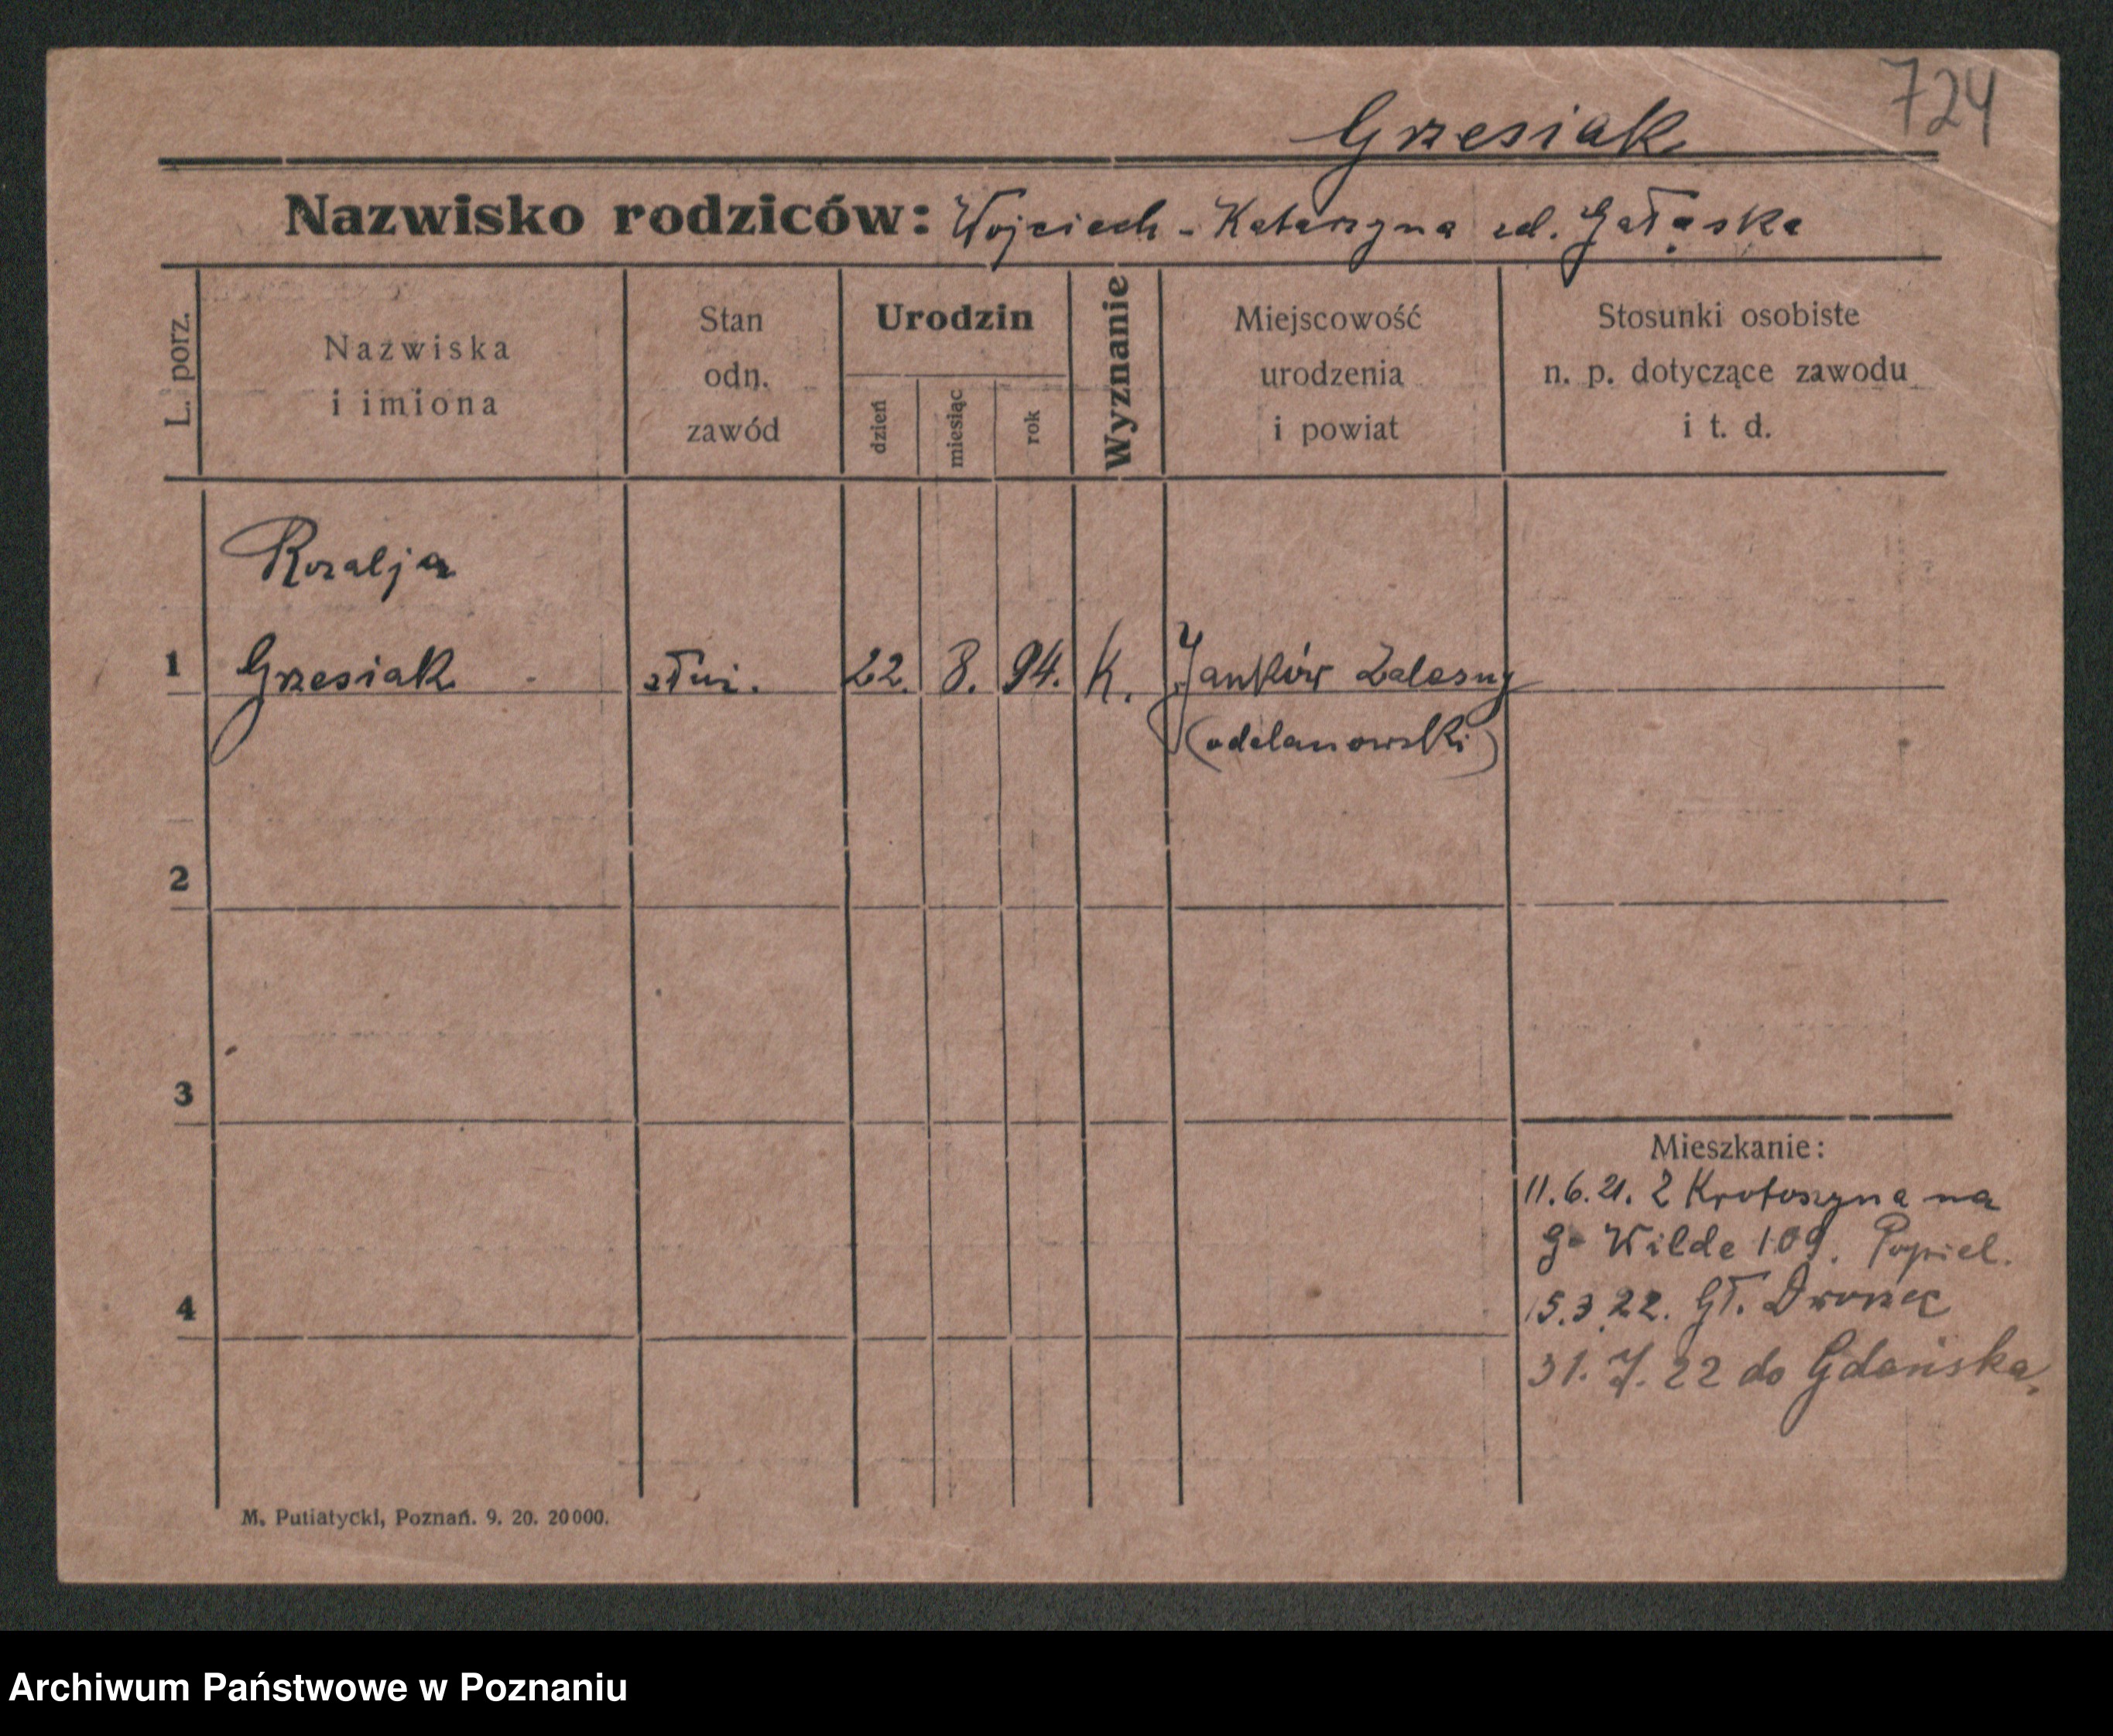 724
Grzesiak
Nazwisko rodziców: Wojciech - Katarzyna zd. Gałąska
L. porz.
Nazwiska
i imiona
Stan
odn.
zawód
Urodzin
dzień
miesiąc
rok
Wyznanie
Miejscowość
urodzenia
i powiat
Stosunki osobiste
n. p. dotyczące zawodu
i t. d.
Rozalja
1 Grzesiak 22. 8. 94. K. Janków Zalesny
(odolanowski)
2
3
Mieszkanie:
11.6.21. Z Krotoszyna na
g. Wilde 109. Popiel.
4 15.3.22. Gł. Dworzec
31.7.22 do Gdańska.
M. Putiatycki, Poznań. 9. 20. 20000.
Archiwum Państwowe w Poznaniu